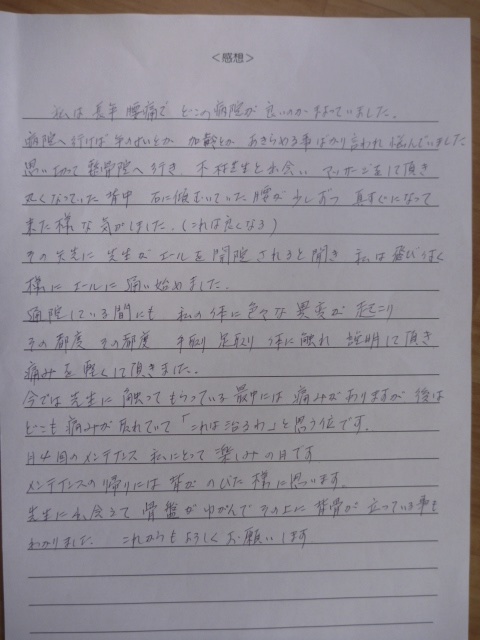 ＜感想＞
私は長年腰痛でどこの病院が良いのか
病院へ行けば とか 加齢とか あきらめる事ばかり言われ悩んでいました
思い切って整骨院へ行き 先生と出会い マッサージをして頂き
丸くなっていた背中 右に傾むいていた腰が少しずつ真すぐになって
来た様な気がしました。（これは良くなる）
その矢先に先生がエールを開院されると聞き 私は飛びつく
様にエールに通い始めました。
通院している間にも 私の体に色々な異変が起こり
その都度 その都度 手取り足取り 体に触れ 説明して頂き
痛みを軽くして頂きました。
今では先生に触ってもらっている最中には痛みがありますが 後は
どこも痛みが取れていて「これは治るわ」と思う位です。
月4回のメンテイナンス 私にとって楽しみの日です
メンテイナンスの帰りには背がのびた様に思います。
先生に出会って骨盤がゆがんでその上に背骨が立っている事も
わかりました。 これからもよろしくお願いします